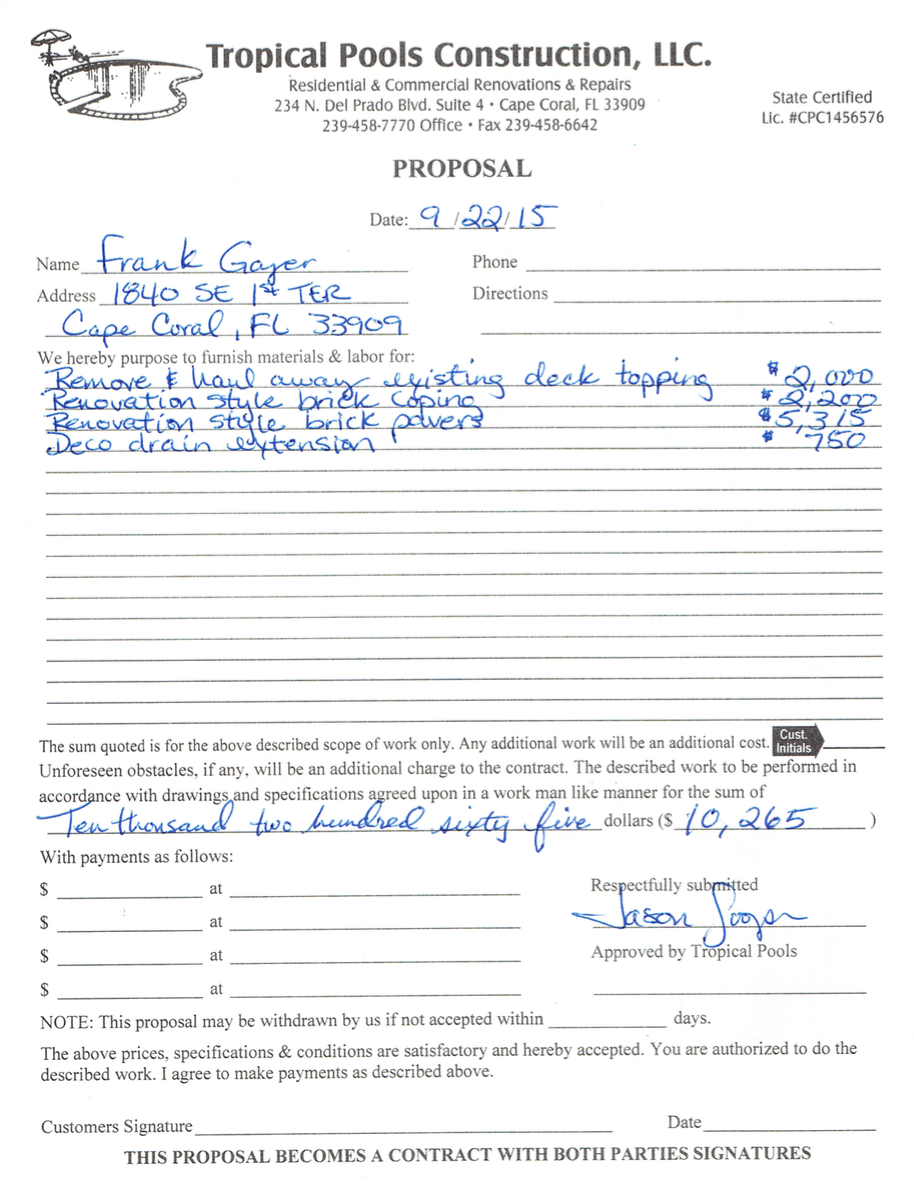 Tropical Pools Construction, LLC.
Residential & Commercial Renovations & Repairs
234 N. Del Prado Blvd. Suite 4 • Cape Coral, FL 33909
239-458-7770 Office • Fax 239-458-6642
State Certified
Lic. #CPC1456576
PROPOSAL
Date: 9/22/15
Name Frank Gayer
Phone
Address 1840 SE 1st TER
Directions
Cape Coral, FL 33909
We hereby purpose to furnish materials & labor for:
Remove & haul away existing deck topping $2,000
Renovation style brick coping $2,200
Renovation style brick pavers $5,315
Deco drain extension $ 750
The sum quoted is for the above described scope of work only. Any additional work will be an additional cost. Cust. Initials
Unforeseen obstacles, if any, will be an additional charge to the contract. The described work to be performed in
accordance with drawings and specifications agreed upon in a work man like manner for the sum of
Ten thousand two hundred sixty five dollars ($ 10,265 )
With payments as follows:
$ at
Respectfully submitted
$ at
Jason
$ at
Approved by Tropical Pools
$ at
NOTE: This proposal may be withdrawn by us if not accepted within days.
The above prices, specifications & conditions are satisfactory and hereby accepted. You are authorized to do the
described work. I agree to make payments as described above.
Customers Signature Date
THIS PROPOSAL BECOMES A CONTRACT WITH BOTH PARTIES SIGNATURES